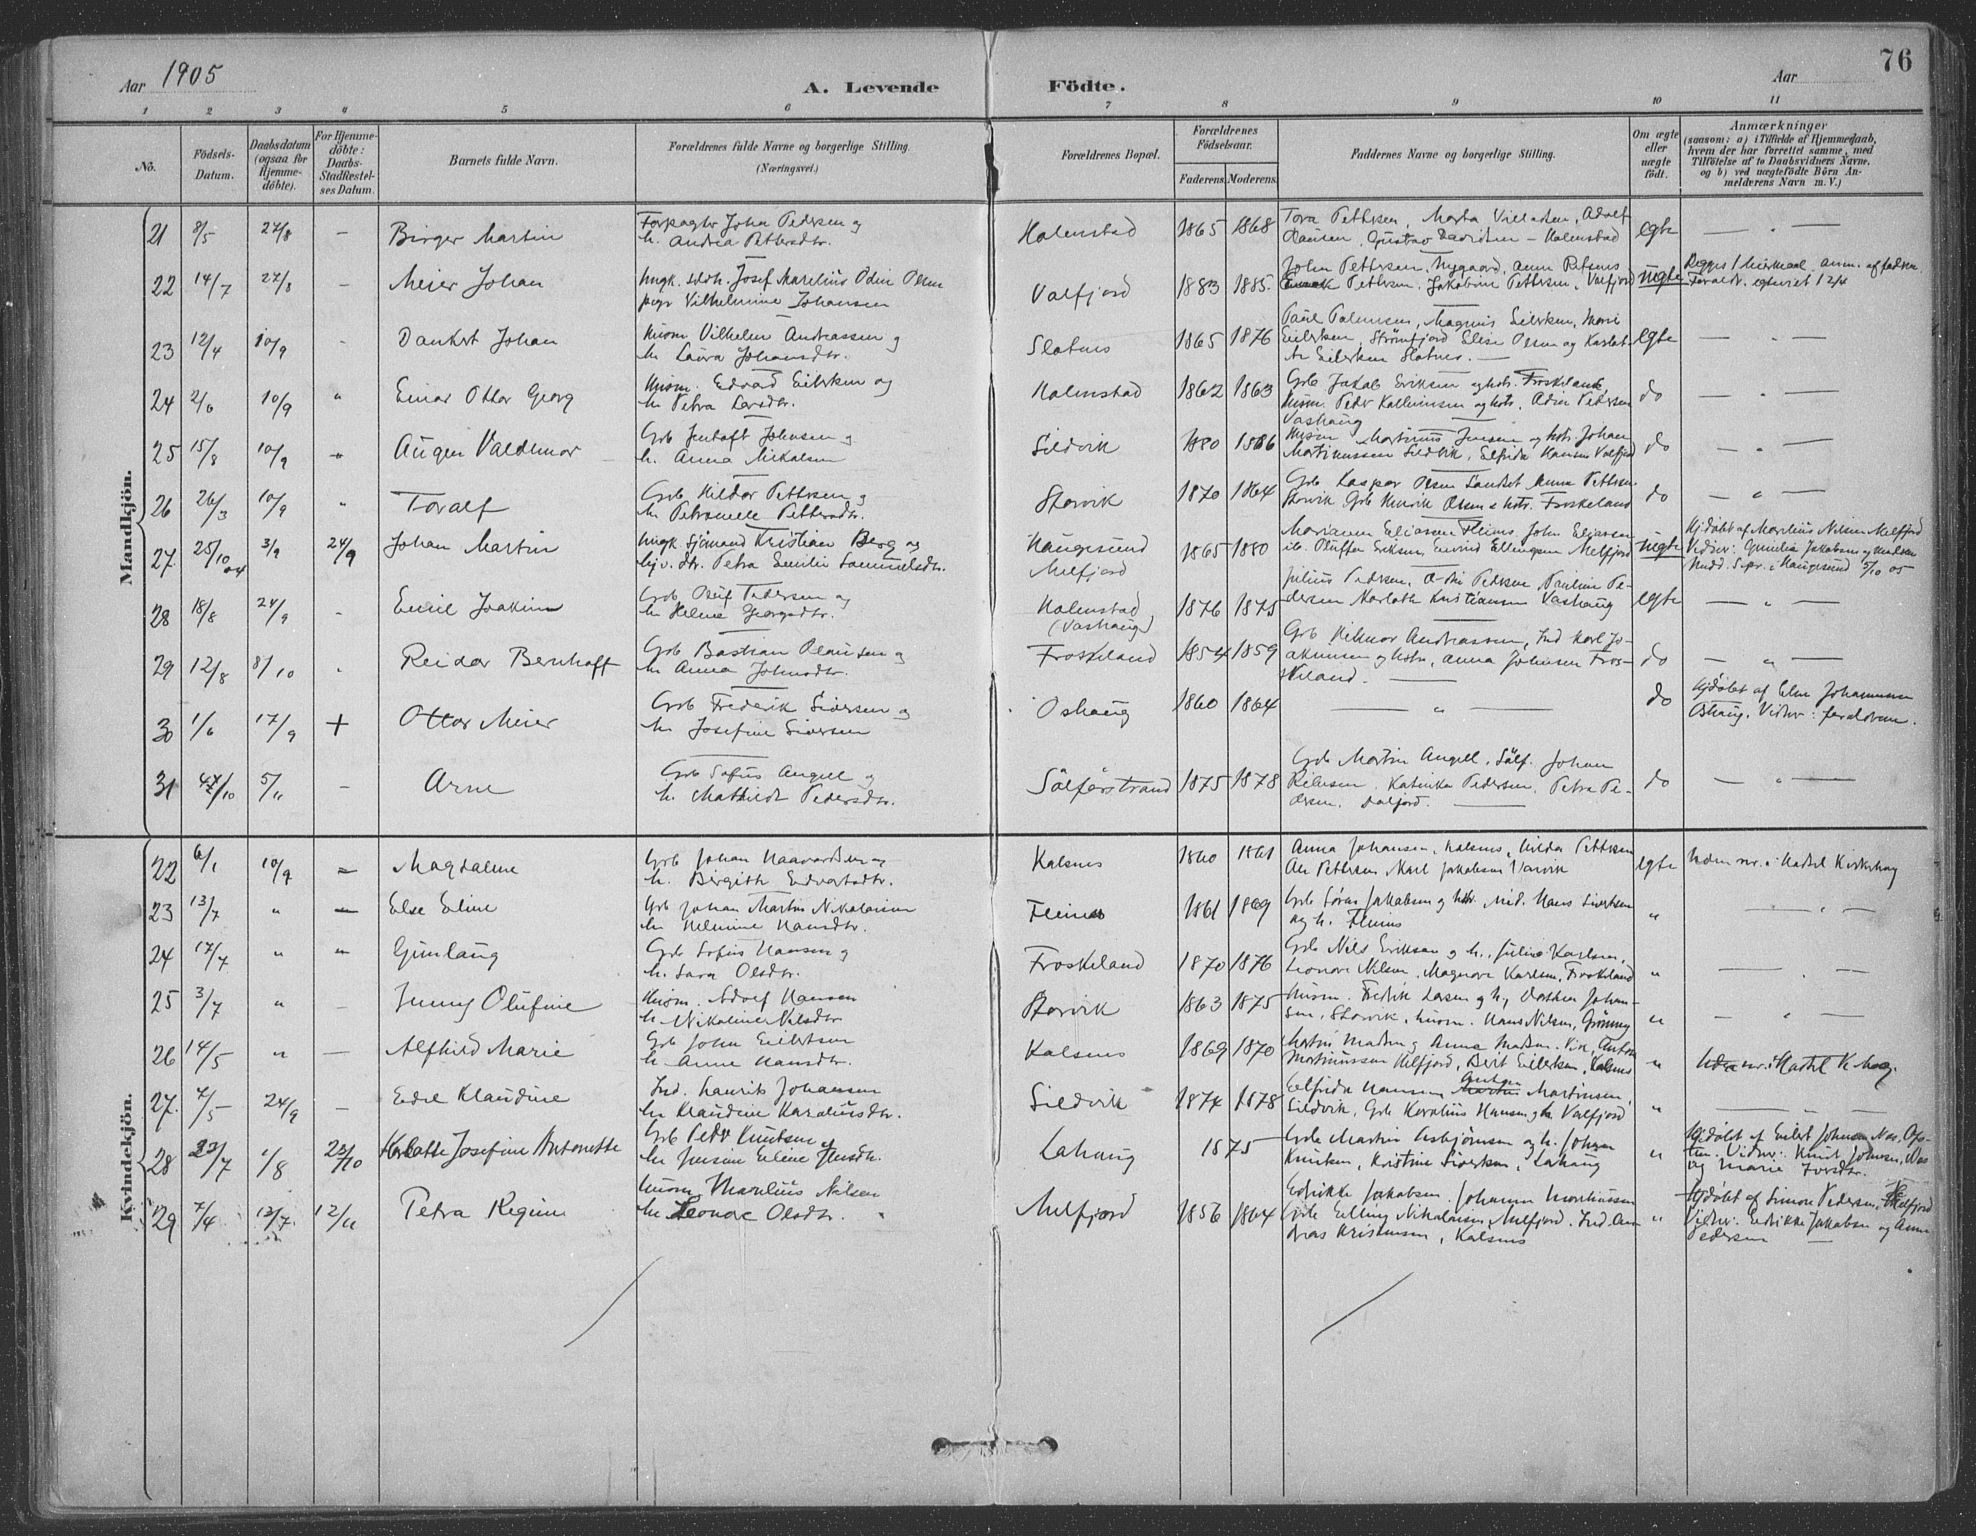 Aar 1905
A. Levende Födte.
Aar
76
1 2 3 4 5 6 7 8 9 10 11
No.
Födsels-Datum.
Daabsdatum (ogsaa for Hjemme-döbte).
For Hjemme-döbte: Daabs-Stadfæstel-ses Datum.
Barnets fulde Navn.
Forældrenes fulde Navne og borgerlige Stilling.
(Næringsvei.)
Forældrenes Bopæl.
Forældrenes Födselsaar.
Faderens. Moderens.
Faddernes Navne og borgerlige Stilling.
Om ægte eller uægte födt.
Anmærkninger
(saasom: a) i Tilfælde af Hjemmedaab,
hvem der har forrettet samme, med
Tilföielse af to Daabsvidners Navne,
og b) ved uægtefödte Börn An-
melderens Navn m. V.)
Mandkjön.
21 8/5 27/8 – Birger Martin
Forpagter Johan Pedersen og
h. Andrea Pettersdtr.
Holmstad 1865 1868
Tora Pettersen, Marta Villadsen, Adolf
Hansen, Gustav Davidsen – Holmstad
egte — " —
22 14/7 27/8 – Meier Johan
Ungk. Josef Marelius Odin Olsen
pige Vilhelmine Johansen
Valfjord 1883 1885.
John Pettersen, Nygaard, Anna
Pettersen. Jakobine Pettersen, Valfjord
uegte
af faderen
12/4
23 12/4 10/9 - Dankert Johan
Husm Vilhelm Andreassen og
h. Laura Johansdtr.
Slotnes 1865 1876
Paul Paulsen, Magnus Eilertsen, Marie
Eilertsen, Strømfjord Elise Olsen og Karlot-
te Eilertsen Slotnes. —
egte — . —
24 2/6 10/9 " Einar Ottar Georg
Husm. Edvard Eilertsen og
h. Petra Larsdtr.
Holmstad 1862 1863
Grb Jakob Eriksen og hstr. Froskeland,
Husm. Peder og hstr. Pedersen
Vashaug
do — . —
25 15/8 10/9 " Augen Valdemar
Grb Jentoft Johnsen og
h. Anna Mikalsen
Sildvik 1880 1886
Husm Martinus Jensen og hstr. Johan
Martinussen Sildvik, Elfrida Hansen Valfjord
do — . —
26 26/3 10/9 " Toralf
Grb Hildor Pettersen og
h. Petronelle Pettersdtr.
Storvik 1870 1864
Grb Kaspar Olsen Anna Pettersen
Storvik Grb Henrik Olsen & hstr. Froskeland
do — " —
27. 25/10 04 3/9 24/9 Johan Martin
Ungk Sjömand Kristian Berg og
hjv. dtr. Petra Emilie Samuelsdtr.
Haugesund
Melfjord
1865 1880
Mariann Eliassen Fleines John Eliassen
ib. Oluffa Eriksen, Eivind Ellingsen Melfjord
uegte
Hjdøbt af Marelius Nilsen Melfjord
Vidner: Jakobsen og
5/10 05
28 18/8 24/9 - Emil Joakim
Grb Oluf Pedersen og
h. Helene Georgsdtr.
Holmstad
(Vashaug)
1876 1875
Julius Pedersen, Pedersen Pauline Pe-
dersen Karloth Kristiansen Vashaug
egte — " —
29 12/8 8/10 . Reidar Bernhoft
Grb Bastian Olausen og
h. Anna Johnsdtr.
Froskeland 1854 1859
Grb Hilmar Andreassen, Ind Karl Jo-
akimsen og hstr, Anna Johnsen Fros-
keland. —
do — " —
30 1/6 17/9 + Ottar Meier
Grb Frederik Siversen og
h. Josefine Siversen
Oshaug 1860 1864
— " —
do
Hjdøbt af Johannesen
Oshaug. Vidner: forældrene.
31 10 5/11 – Arne
Grb Sofus Angell og
h. Mathilde Pedersdtr.
Sölferstrand 1875 1878
Grb Martin Angell, Sölf. Johan
Katinka Pedersen. Petra Pe-
dersen, Valfjord. —
do — " —
Kvindekjön.
22 6/1 10/9 – Magdalene
Grb Johan Haavardsen og
h. Birgith Edvardsdtr.
Kalsnes 1860 1861
Anna Johansen, Kalsnes, Hilda Pettersen
Pettersen Karl Jakobsen Vasvik
egte Hadsel Kirkebog
23 13/7 " – Else Eline
Grb Johan Martin Nikolaisen
h. Helmine Hansdtr.
Fleines 1861 1869
Grb Søren Jakobsen og hstr. Hans Sivertsen
og h. Fleines
" — . —
24 17/7 " " Gunlaug
Grb Sofus Hansen og
h. Sara Olsdtr.
Froskeland 1870 1876
Grb Nils Eriksen og h., Julie Karlsen,
Leonore Nilsen, Magnor Karlsen, Froskeland
" — . —
25 3/7 " – Jenny Olufine
Husm. Adolf Hansen
h. Nikoline Nilsdtr
Storvik 1863 1875
Husm. Fredrik Larsen og h, Dorthea Johan-
sen, Storvik, husm. Hans Nilsen, Grönning
" — " —
26 14/5 " — Alfhild Marie
Grb John Eilertsen
h. Anne Hansdtr.
Kalsnes 1869 1870
Martin Madsen og Anna Madsen. Vik, Anton
Martinussen Melfjord, Berit Eilertsen, Kalsnes
" Hadsel K.bog.
27. 7/5 24/9 – Edel Klaudine
Ind. Laurits Johansen
h. Klaudine Karoliusdtr.
Sildvik 1874 1878
Elfrida Hansen, Anton Martinsen,
Sildvik, Grb Karolius Hansen Valfjord
" —
28 23/7 1/8 22/10 Karlotte Josefine Antonette
Grb Peder Knutsen og
h. Jensine Eline Jensdtr.
Lahaug 1875
Grb Martin Asbjørnsen og h. Johan
Knutsen, Kristine Sivertsen, Lahaug
"
Hjdøbt af Eilert Johnsen Nes, Ofo-
ten. Vidner: Knut Johnsen, Nes
og Marie
29 7/4 13/7 12/11 Petra Regine
Husm Marelius Nilsen
h. Leonore Olsdtr.
Melfjord 1856 1864
Edrikke Jakobsen. Johanna Martinussen
Grb Elling Nikolaisen Melfjord. Ind An-
dreas Kristensen, Kalsnes
"
Hjdøbt af Simon Pedersen, Melfjord
Vidner: Edrikke Jakobsen og Anna
Pedersen —